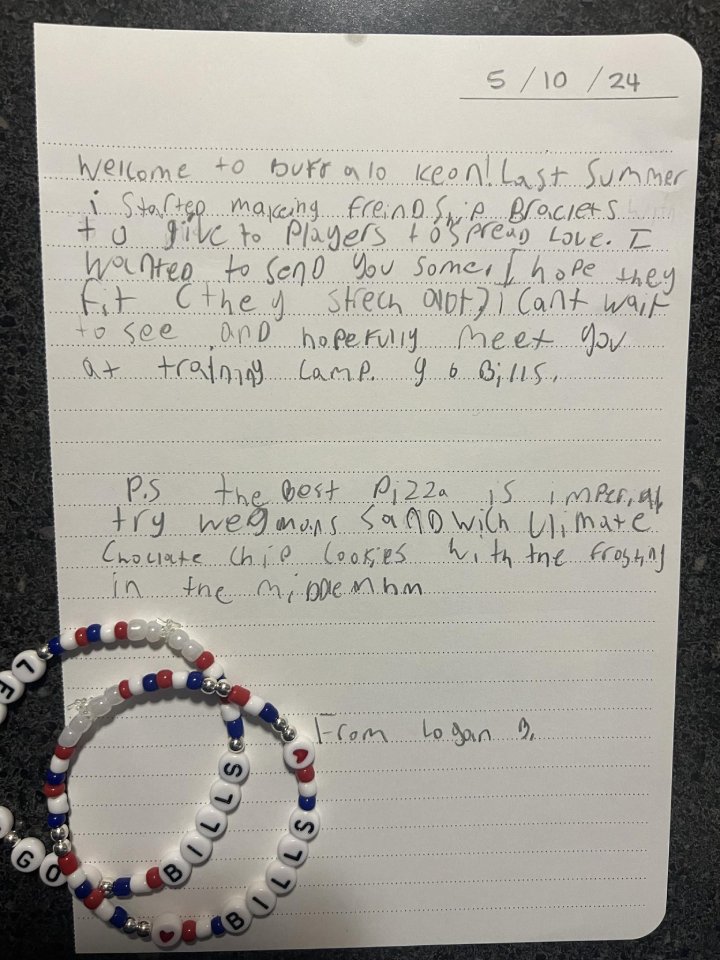 5/10/24
Welcome to Buffalo Keon! Last Summer
i Started making freindship Braclets
to give to Players to spread Love. I
Wanted to send you some. I hope they
fit (they strech alot) i cant wait
to see and hopefully meet you
at training camp. go Bills.
P.S the Best Pizza is imperial
try wegmans SANDWich Ulimate
Choclate chip cookies with the frosting
in the middle Mhm
From Logan B.
LE
GO
BILLS
BILLS